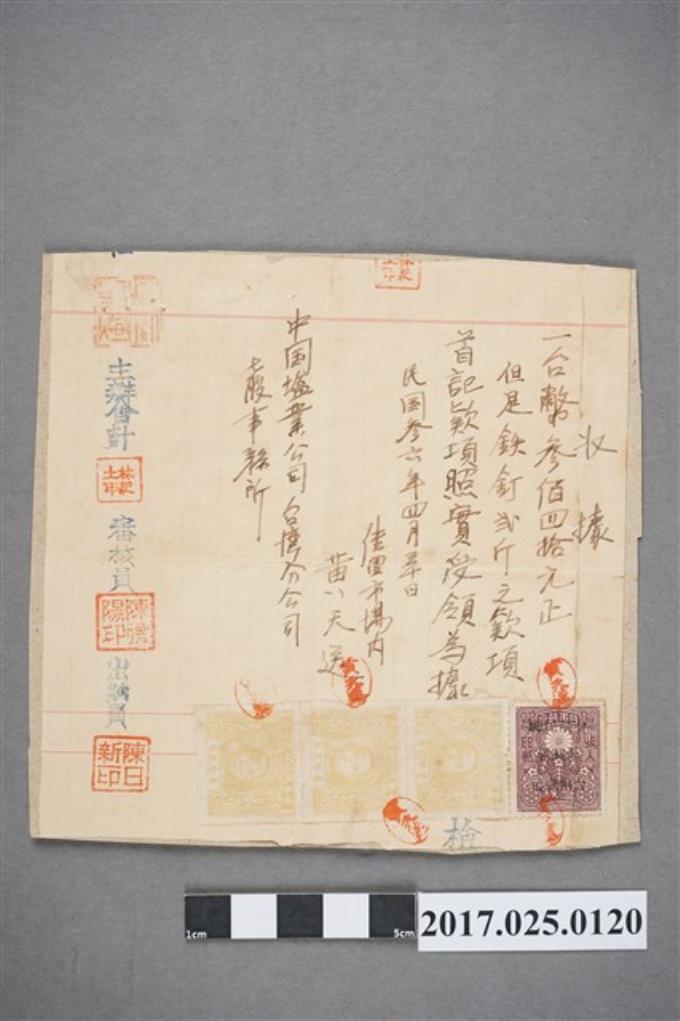 收據
一台幣叄佰四拾元正
但是鉄釘弍斤之款項
首記款項照實受領為據
民国叄六年四月 日
佳里市場內
黃 天送
中国塩業公司台湾分公司
七股事務所
主辦會計
審核員
陳 陽印
出納員
陳日新印
檢
收入印紙
1cm
5cm
2017.025.0120